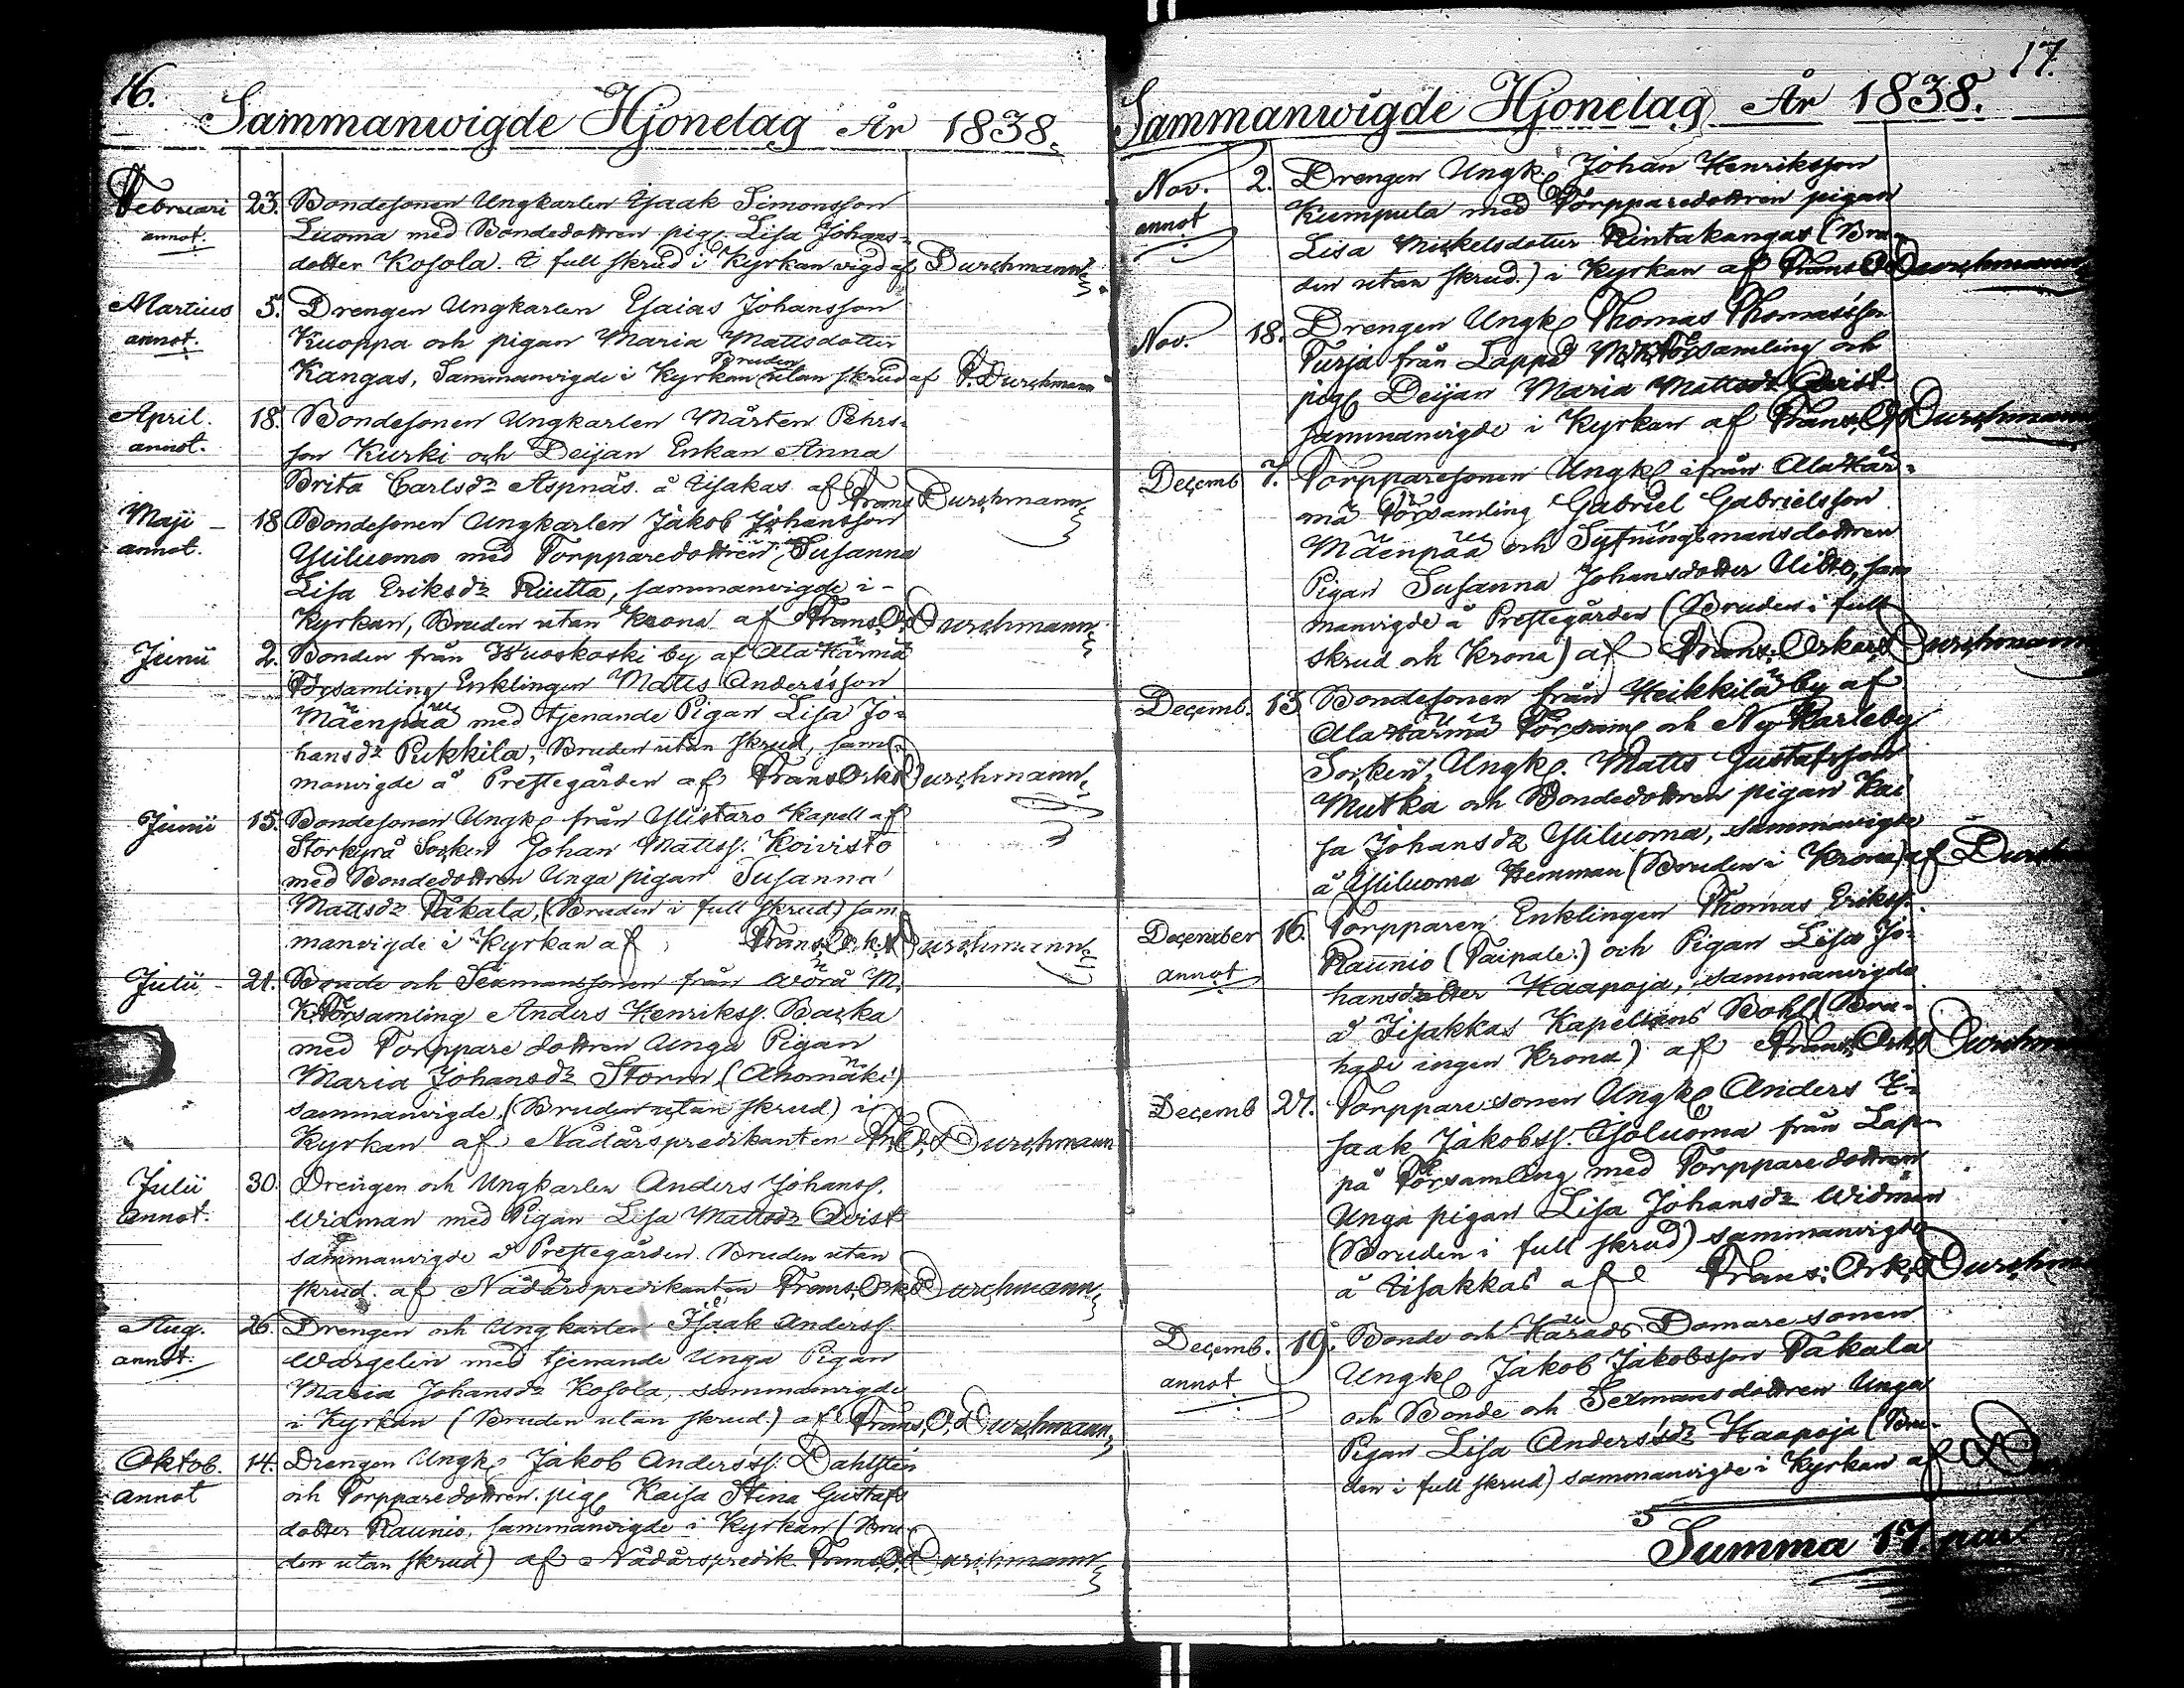 16.
Sammanwigde Hjonelag År 1838.
Februari 23. Bondesonen Ungkarlen Isaak Simonsson
annot. Luoma med Bondedottren pig. Lisa Johans-
dotter Kosola. i full skrud i Kyrkan vigd af Durchmann
Martius 5. Drengen Ungkarlen Esaias Johansson
annot. Kuoppa och pigan Maria Mattsdotter
Bruden
Kangas, Sammanvigde i Kyrkan utan skrud af F. Durchmann
April. 18. Bondesonen Ungkarlen Mårten Pehrs-
annot. son Kurki och Deijan Enkan Anna
Brita Carlsdr Aspnäs å Iisakas af Frans Durchmann
Maji 18 Bondesonen Ungkarlen Jakob Johansson
annot. Yliluoma med Torpparedottren Susanna
Lisa Eriksdr Riutta, sammanvigde i
Kyrkan, Bruden utan Krona af Frans O. Durchmann
Junii 2. Bonden från Wuoskoski by af Ala Kärmä
Församling Enklingen Matts Andersson
Mäenpää med tjenande Pigan Lisa Jo-
hansdr Pukkila, Bruden utan skrud, sam-
manvigde å Prestegården af Frans Ork. Durchmann
Junii 15. Bondesonen Ungk. från Ylistaro Kapell af
Storkyrå Socken Johan Mattss. Koivisto
med Bondedottren Unga pigan Susanna
Mattsdr Påkala, (Bruden i full skrud) sam
manvigde i Kyrkan af Frans Ork. Durchmann
Julii 21. Bonde och Sexmanssonen från Wörå M.
K. Församling Anders Henrikss. Backa
med Torppare dottren Unga Pigan
Maria Johansdr Storm, (Ahomäki)
sammanvigde (Bruden utan skrud) i
Kyrkan af Nådårspredikanten Fr. O. Durchmann
Julii 30. Drengen och Ungkarlen Anders Johanss.
annot. Widman med Pigan Lisa Mattsdr Qvist
sammanvigde å Prestegården. Bruden utan
skrud. af Nådårspredikanten Frans Ork. Durchmann
Aug. 26. Drengen och Ungkarlen Isaak Anderss.
annot. Wargelin med tjenande Unga Pigan
Maria Johansdr Kosola, sammanvigde
i Kyrkan (Bruden utan skrud.) af Frans O. Durchmann
Oktob. 14. Drengen Ungk. Jakob Anderss. Dahlsten
annot och Torpparedottren pig. Kaisa Stina Gustafs
dotter Raunio, sammanvigde i Kyrkan (Bru-
den utan skrud) af Nådårspredik. Frans O. Durchmann
17.
Sammanwigde Hjonelag År 1838.
Nov. 2. Drengen Ungk. Johan Henriksson
annot Kumpula med Torpparedottren pigan
Lisa Mickelsdotter Rintakangas (Bru-
den utan skrud.) i Kyrkan af Frans O Durchmann
Nov. 18. Drengen Ungk. Thomas Thomasson
Turja från Lappo M.K. Församling och
pig. Deijan Maria Mattsdr Qvist
sammanvigde i Kyrkan af Frans O. Durchmann
Decemb 7. Torpparesonen Ungk. ifrån Ala Kär-
mä Församling Gabriel Gabrielsson
Mäenpää och Sytningsmansdottren
Pigan Susanna Johansdotter sam
manvigde å Prestegården (Bruden i full
skrud och Krona) af Frans Orkars Durchmann
Decemb. 13 Bondesonen från Heikkilä by af
Ala Kärmä Försam. och Ny Karleby
Socken, Ungk. Matts Gustafsson
Mutka och Bondedottren pigan Kai
sa Johansdr Yliluoma, sammanvigde
å Yliluoma Hemman (Bruden i Krona) af Durchm
December 16. Torpparen Enklingen Thomas Erikss.
annot Raunio (Taipale.) och Pigan Lisa Jo-
hansdotter Haapoja, sammanvigde
å Iisakkas Kapellans Bohl (Bru-
hade ingen Krona) af Frans Ork. Durchm
Decemb 27. Torppare sonen Ungk. Anders I-
saak Jakobss. Isoluoma från Lap-
på Församling med Torpparedottren
Unga pigan Lisa Johansdr Widman
(Bruden i full skrud) sammanvigde
å Iisakkas af Frans Ork. Durchm
Decemb. 19. Bonde och Härads Domare sonen
annot Ungk. Jakob Jakobsson Påkala
och Bonde och Sexmansdottren Unga
Pigan Lisa Andersdr Haapoja (Bru-
den i full skrud) sammanvigde i Kyrkan af D
Summa 17. par